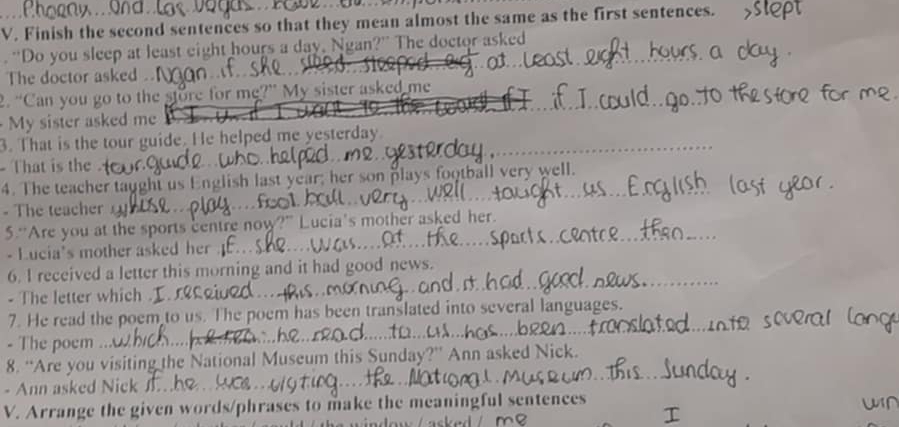 Phoeny...and...Las Vegas...
V. Finish the second sentences so that they mean almost the same as the first sentences. >slept
. "Do you sleep at least eight hours a day, Ngan?" The doctor asked
The doctor asked ..Ngan..if..she at..least..eight..hours..a day.
2. "Can you go to the store for me?" My sister asked me
- My sister asked me if..I..could..go..to the store for me.
3. That is the tour guide. He helped me yesterday.
- That is the .tour.guide...who..helped..me..yesterday.
4. The teacher taught us English last year; her son plays football very well.
- The teacher whose...play...foot ball...very..well...taught...us...English last year.
5."Are you at the sports centre now?" Lucia's mother asked her.
- Lucia's mother asked her .if...she...was...at...the...sports..centre...then....
6. I received a letter this morning and it had good news.
- The letter which .I..received...this..morning..and..it..had..good..news.
7. He read the poem to us. The poem has been translated into several languages.
- The poem ...which he..read...to..us..has..been...translated...into several langu
8. "Are you visiting the National Museum this Sunday?" Ann asked Nick.
- Ann asked Nick if..he..was..visting...the..National..museum..this..Sunday.
V. Arrange the given words/phrases to make the meaningful sentences I win
the window / asked / me